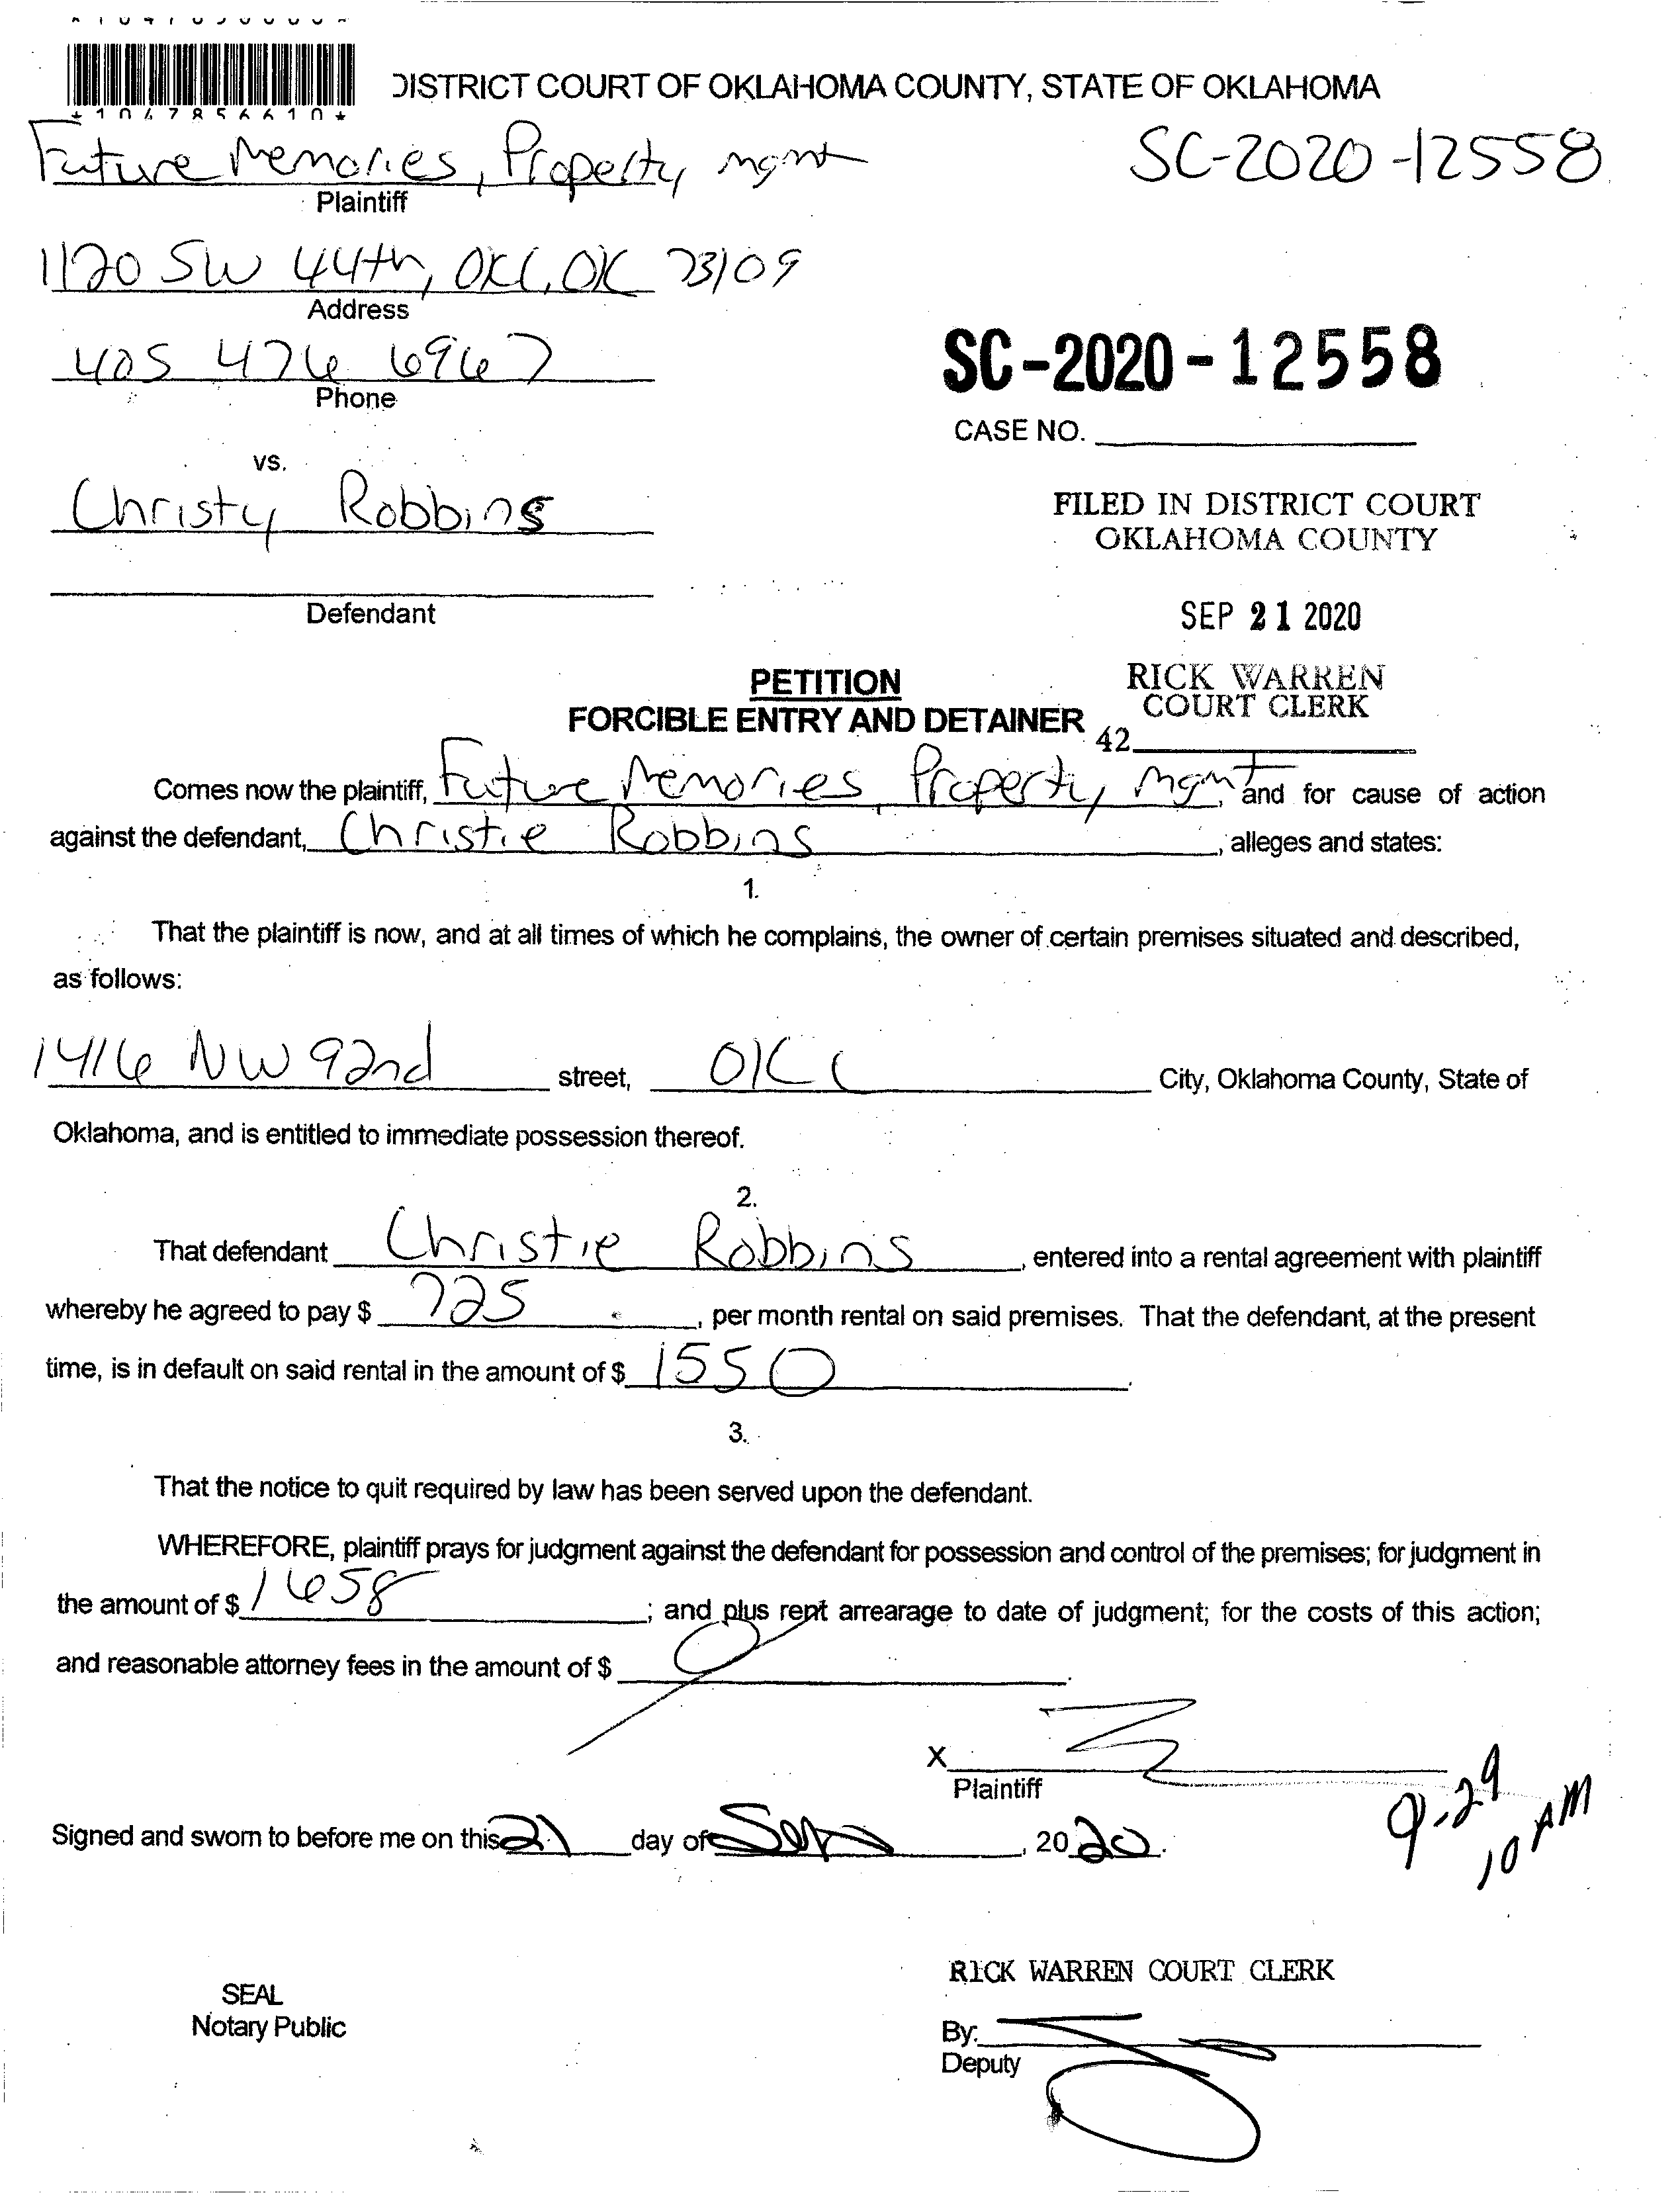 *1047856610*
DISTRICT COURT OF OKLAHOMA COUNTY, STATE OF OKLAHOMA
Future Memories, Property mgmt
SC-2020-12558
Plaintiff
1120 SW 44th, OKC, OK 73109
Address
405 476 6967
Phone
SC-2020-12558
CASE NO.
vs.
Christy Robbins
FILED IN DISTRICT COURT
OKLAHOMA COUNTY
Defendant
SEP 21 2020
PETITION
FORCIBLE ENTRY AND DETAINER
RICK WARREN
COURT CLERK
42
Comes now the plaintiff, Future Memories, Property mgmt, and for cause of action
against the defendant, Christie Robbins, alleges and states:
1.
That the plaintiff is now, and at all times of which he complains, the owner of certain premises situated and described,
as follows:
1416 NW 92nd street, OKC City, Oklahoma County, State of
Oklahoma, and is entitled to immediate possession thereof.
2.
That defendant Christie Robbins, entered into a rental agreement with plaintiff
whereby he agreed to pay $ 725, per month rental on said premises. That the defendant, at the present
time, is in default on said rental in the amount of $ 1550.
3.
That the notice to quit required by law has been served upon the defendant.
WHEREFORE, plaintiff prays for judgment against the defendant for possession and control of the premises; for judgment in
the amount of $ 1658; and plus rent arrearage to date of judgment; for the costs of this action;
and reasonable attorney fees in the amount of $ 0.
X
Plaintiff
9-29
10 AM
Signed and sworn to before me on this 21 day of Sep, 2020.
RICK WARREN COURT CLERK
SEAL
Notary Public
By:
Deputy